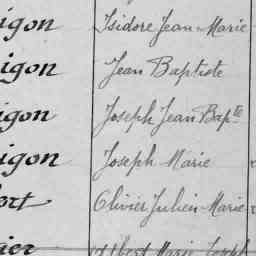 igon Isidore Jean-Marie
igon Jean Baptiste
igon Joseph Jean Bapte
igon Joseph Marie
ort Olivier Julien-Marie
ier Albert Marie Joseph